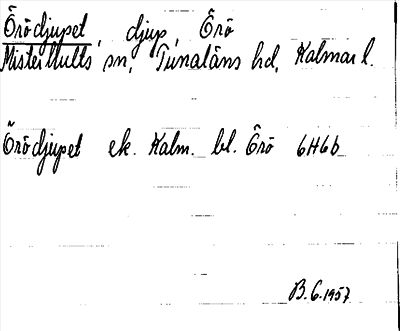 Örödjupet, djup, Örö
Misterhults sn, Tunaläns hd, Kalmar l.
Örödjupet ek. Kalm. bl. Örö 6H6b
B.G.1957